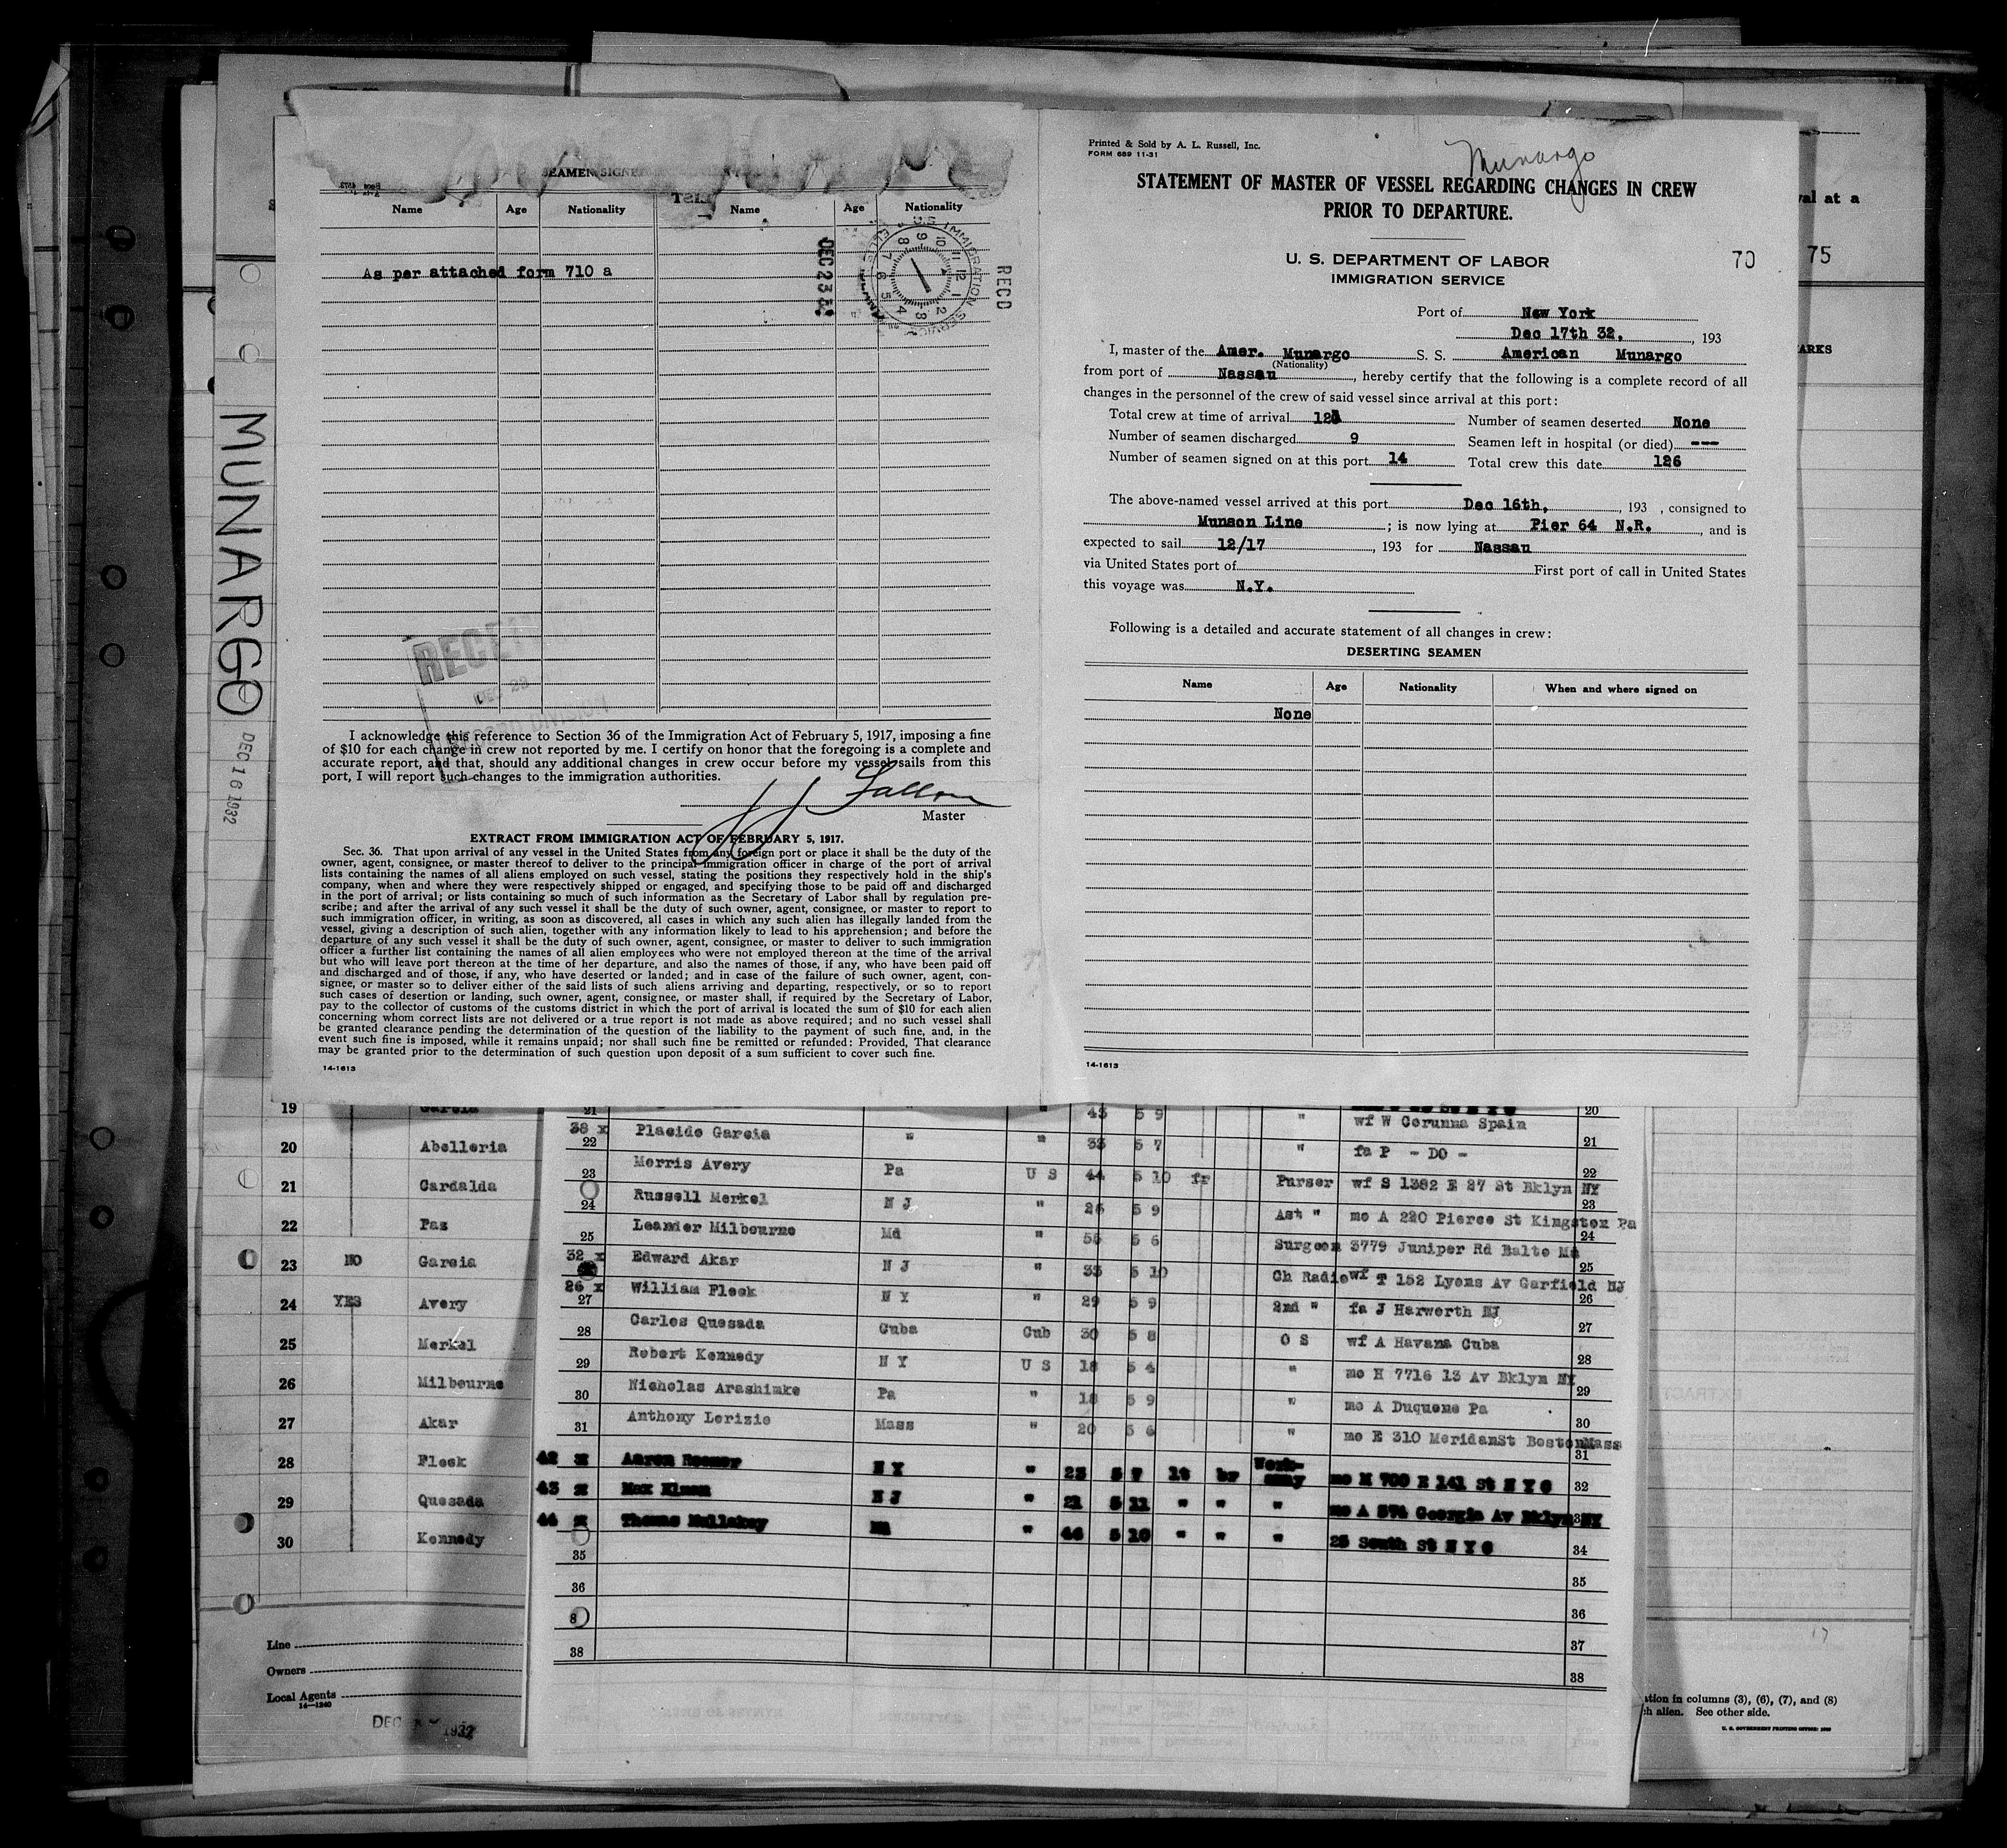 SEAMEN SIGNE
Name Age Nationality Name Age Nationality
As per attached form 710 a
DEC 23
RECD
IMMIGRATION SERVICE
RECE
DEC 23
I acknowledge this reference to Section 36 of the Immigration Act of February 5, 1917, imposing a fine
of $10 for each change in crew not reported by me. I certify on honor that the foregoing is a complete and
accurate report, and that, should any additional changes in crew occur before my vessel sails from this
port, I will report such changes to the immigration authorities.
Fallon
Master
EXTRACT FROM IMMIGRATION ACT OF FEBRUARY 5, 1917.
Sec. 36. That upon arrival of any vessel in the United States from any foreign port or place it shall be the duty of the
owner, agent, consignee, or master thereof to deliver to the principal immigration officer in charge of the port of arrival
lists containing the names of all aliens employed on such vessel, stating the positions they respectively hold in the ship's
company, when and where they were respectively shipped or engaged, and specifying those to be paid off and discharged
in the port of arrival; or lists containing so much of such information as the Secretary of Labor shall by regulation pre-
scribe; and after the arrival of any such vessel it shall be the duty of such owner, agent, consignee, or master to report to
such immigration officer, in writing, as soon as discovered, all cases in which any such alien has illegally landed from the
vessel, giving a description of such alien, together with any information likely to lead to his apprehension; and before the
departure of any such vessel it shall be the duty of such owner, agent, consignee, or master to deliver to such immigration
officer a further list containing the names of all alien employees who were not employed thereon at the time of the arrival
but who will leave port thereon at the time of her departure, and also the names of those, if any, who have been paid off
and discharged and of those, if any, who have deserted or landed; and in case of the failure of such owner, agent, con-
signee, or master so to deliver either of the said lists of such aliens arriving and departing, respectively, or so to report
such cases of desertion or landing, such owner, agent, consignee, or master shall, if required by the Secretary of Labor,
pay to the collector of customs of the customs district in which the port of arrival is located the sum of $10 for each alien
concerning whom correct lists are not delivered or a true report is not made as above required; and no such vessel shall
be granted clearance pending the determination of the question of the liability to the payment of such fine, and, in the
event such fine is imposed, while it remains unpaid; nor shall such fine be remitted or refunded: Provided, That clearance
may be granted prior to the determination of such question upon deposit of a sum sufficient to cover such fine.
14-1613
Printed & Sold by A. L. Russell, Inc.
FORM 689 11-31
Munargo
STATEMENT OF MASTER OF VESSEL REGARDING CHANGES IN CREW
PRIOR TO DEPARTURE.
U. S. DEPARTMENT OF LABOR
IMMIGRATION SERVICE
70
Port of New York
Dec 17th 32, , 193
I, master of the Amer. Munargo S. S. American Munargo
(Nationality)
from port of Nassau, hereby certify that the following is a complete record of all
changes in the personnel of the crew of said vessel since arrival at this port:
Total crew at time of arrival 121 Number of seamen deserted None
Number of seamen discharged 9 Seamen left in hospital (or died) ---
Number of seamen signed on at this port 14 Total crew this date 126
The above-named vessel arrived at this port Dec 16th, , 193 , consigned to
Munson Line ; is now lying at Pier 64 N.R. , and is
expected to sail 12/17 , 193 for Nassau
via United States port of First port of call in United States
this voyage was N.Y.
Following is a detailed and accurate statement of all changes in crew:
DESERTING SEAMEN
Name Age Nationality When and where signed on
None
14-1613
val at a
75
ARKS
MUNARGO DEC 16 1932
19 Garcia
20 Abelleria
21 Cardalda
22 Paz
23 NO Garcia
24 YES Avery
25 Merkel
26 Milbourne
27 Akar
28 Fleck
29 Quesada
30 Kennedy
Line
Owners
Local Agents
14-1240
DEC 1932
21 " " 43 5 9 " wf W Corunna Spain 20
38 x 22 Placido Garcia " " 33 5 7 " fa P - DO - 21
23 Morris Avery Pa U S 44 5 10 fr Purser wf S 1382 E 27 St Bklyn NY 22
24 Russell Merkel N J " 26 5 9 Ast " mo A 220 Pierce St Kingston Pa 23
25 Leander Milbourne Md " 55 5 6 Surgeon 3779 Juniper Rd Balto Md 24
32 x Edward Akar N J " 33 5 10 Ch Radio wf T 152 Lyons Av Garfield NJ 25
26 x 27 William Fleck N Y " 29 5 9 2nd " fa J Harworth NJ 26
28 Carlos Quesada Cuba Cub 30 5 8 O S wf A Havana Cuba 27
29 Robert Kennedy N Y U S 18 5 4 " mo H 7716 13 Av Bklyn NY 28
30 Nicholas Arashimke Pa " 18 5 9 " mo A Duquene Pa 29
31 Anthony Lorizio Mass " 20 5 6 " mo E 310 MeridanSt BostonMass 30
42 x Aaron Rosner N Y " 23 5 7 lt br Work-away mo M 700 E 141 St N Y C 31
43 x Max Elman N J " 21 5 11 " " " mo A 574 Georgia Av Bklyn NY 32
44 x Thomas Mullakey " 44 5 10 " " " 25 South St N Y C
35 34
36 35
36
37
38
38
ation in columns (3), (6), (7), and (8)
ch alien. See other side.
U. S. GOVERNMENT PRINTING OFFICE
17